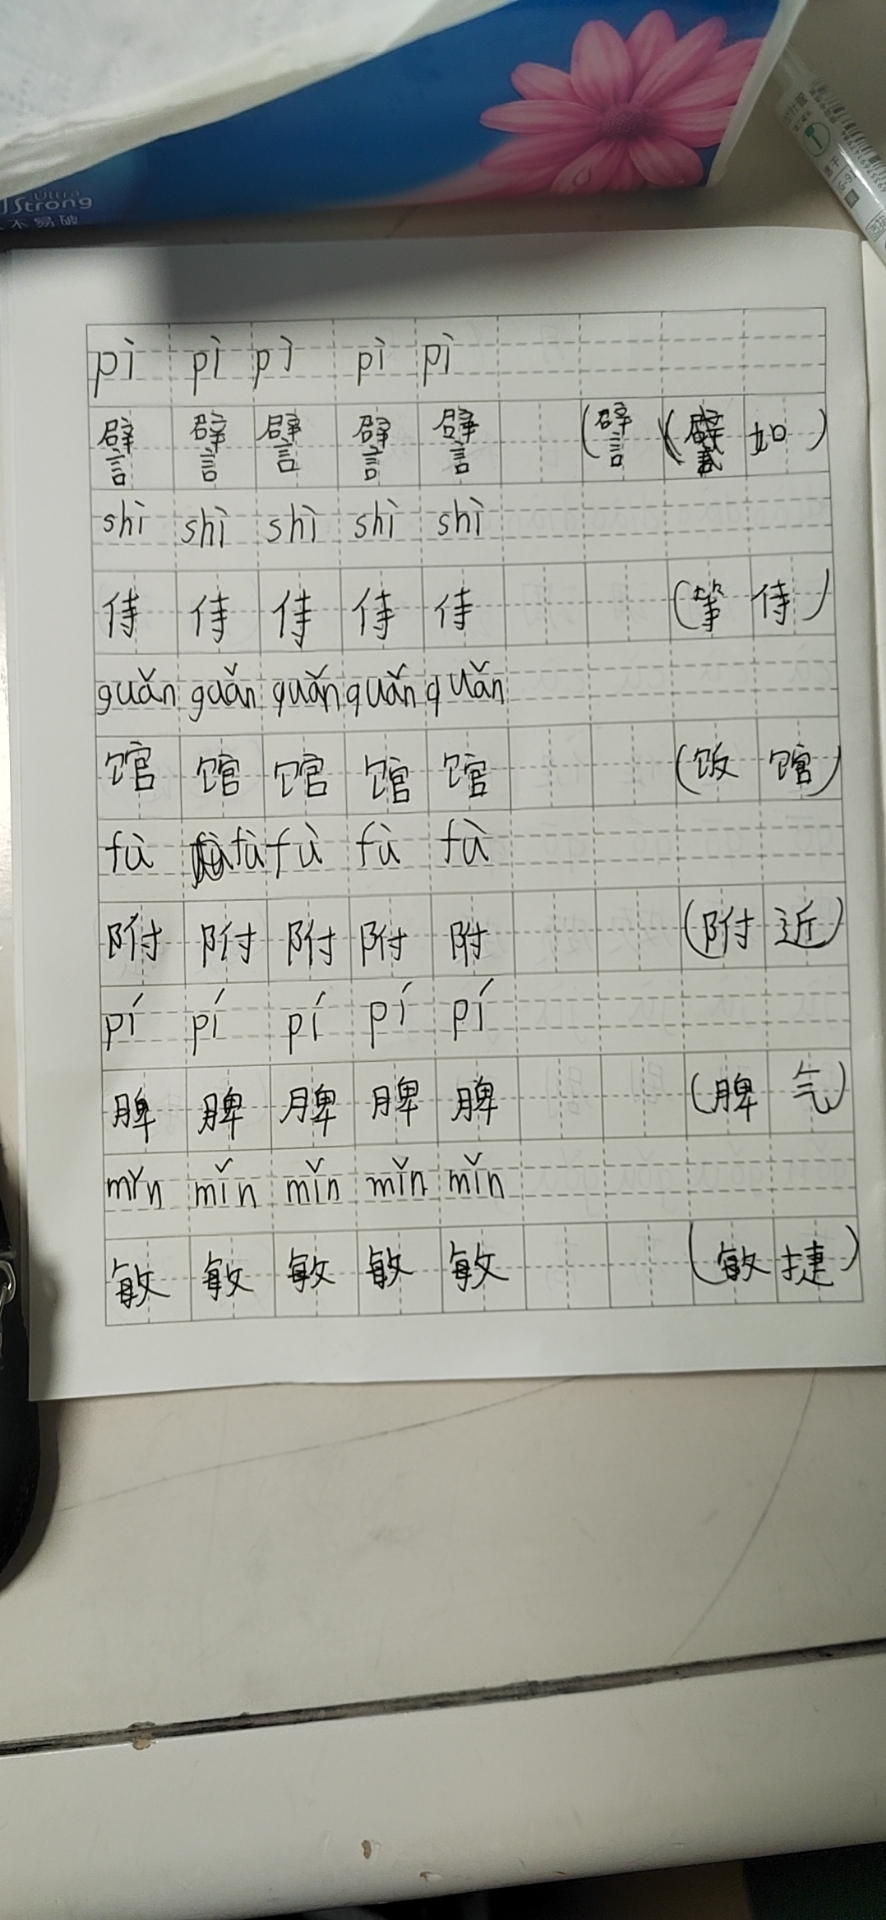 Ultra
Strong
不易破
pì pì pì pì pì
譬 譬 譬 譬 譬 (譬 ( 如)
shì shì shì shì shì
侍 侍 侍 侍 侍 (等 侍)
guǎn guǎn guǎn guǎn guǎn
馆 馆 馆 馆 馆 (饭 馆)
fù fù fù fù fù
附 附 附 附 附 (附 近)
pí pí pí pí pí
脾 脾 脾 脾 脾 (脾 气)
mǐn mǐn mǐn mǐn mǐn
敏 敏 敏 敏 敏 (敏 捷)